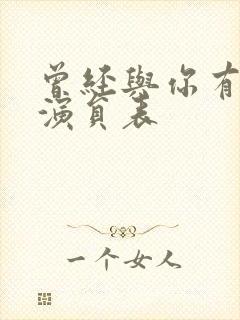 曾经與你有
演員表
一个女人